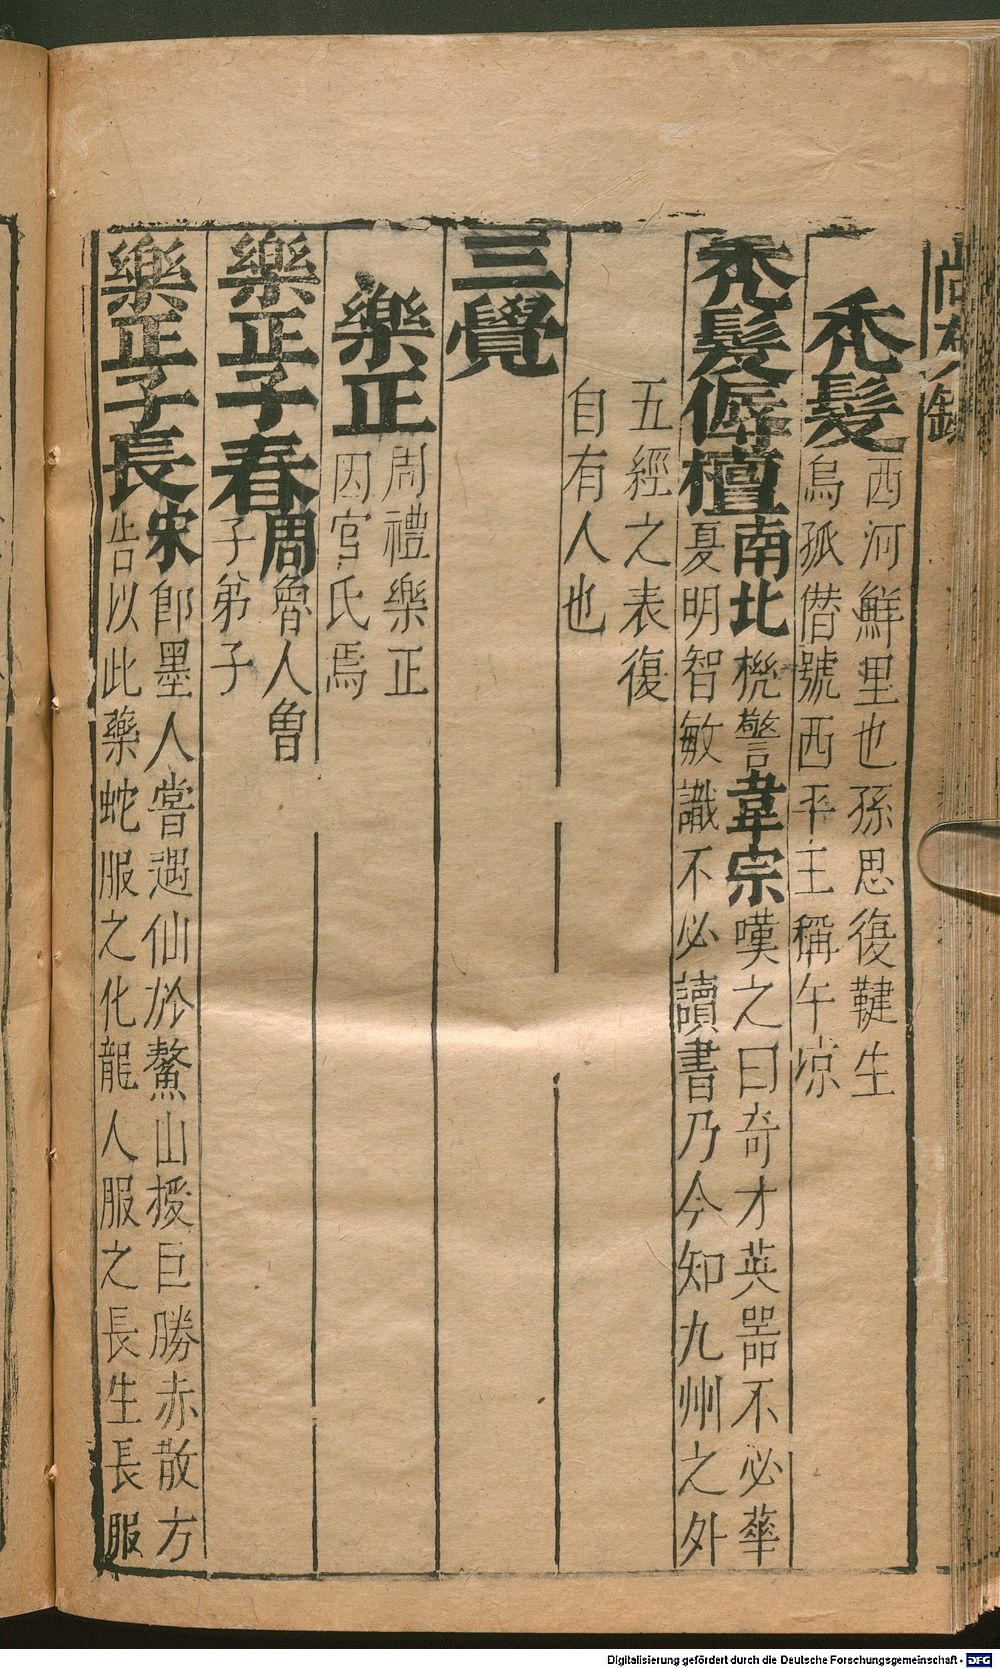 尚友錄
禿髮
西河鮮里也孫思復鞬生
烏孤僭號西平王稱午凉
禿髮傉檀
南北機警韋宗嘆之曰奇才英噐不必華
夏明智敏識不必讀書乃今知九州之外
五經之表復
自有人也
三覺
樂正
周禮樂正
因官氏焉
樂正子春
周魯人曾
子弟子
樂正子長
宋即墨人嘗遇仙於鰲山授巨勝赤散方
告以此藥蛇服之化龍人服之長生長服
Digitalisierung gefördert durch die Deutsche Forschungsgemeinschaft - DFG